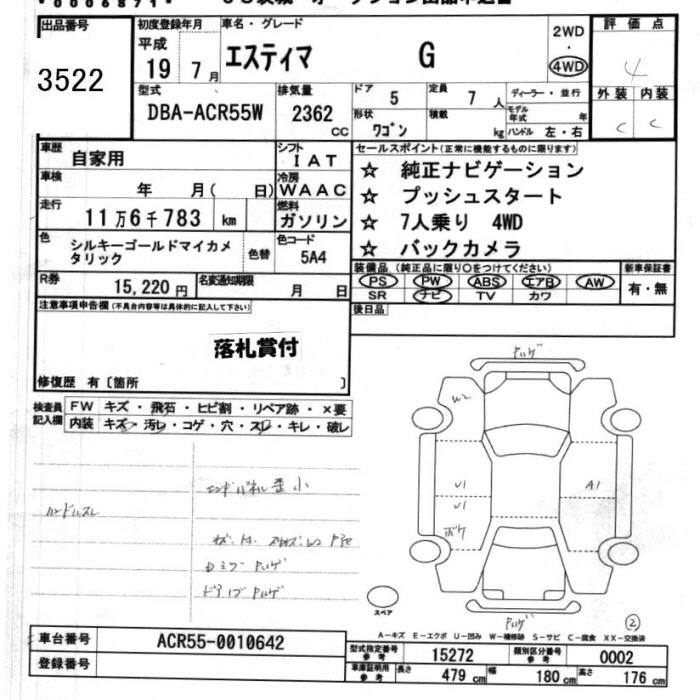 出品番号
3522
初度登録年月
平成
19 7月
車名・グレード
エスティマ G
2WD
・
4WD
評価点
4
外装 内装
C C
型式
DBA-ACR55W
排気量
2362
CC
ドア
5
定員
7 人
ディーラー・並行
形状
ワゴン
積載
kg
モデル
年式
年
ハンドル 左・右
車歴
自家用
シフト
IAT
車検
年 月( 日)
冷房
WAAC
走行
11万6千783 km
燃料
ガソリン
色
シルキーゴールドマイカメ
タリック
色替
色コード
5A4
R券
15,220円
名変通知期限
月 日
セールスポイント(正常に機能するものに限ります)
☆ 純正ナビゲーション
☆ プッシュスタート
☆ 7人乗り 4WD
☆ バックカメラ
装備品 (純正品に限り○をつけてください)
PS PW ABS エアB AW
SR ナビ TV カワ
新車保証書
有・無
後日品
注意事項申告欄(不具合内容等は具体的に記入して下さい)
落札賞付
修復歴 有〔箇所 〕
検査員
記入欄
FW キズ・飛石・ヒビ割・リペア跡・×要
内装 キズ・汚レ・コゲ・穴・スレ・キレ・破レ
ハンドルスレ
エンドパネル歪小
W2
U1
U1
ボケ
A1
スペア
②
A-キズ E-エクボ U-凹み W-補修跡 S-サビ C-腐食 XX-交換済
車台番号
ACR55-0010642
登録番号
型式指定番号
参考
15272
類別区分番号
参考
0002
車庫証明用
参考
長さ 479 cm
幅 180 cm
高さ 176 cm